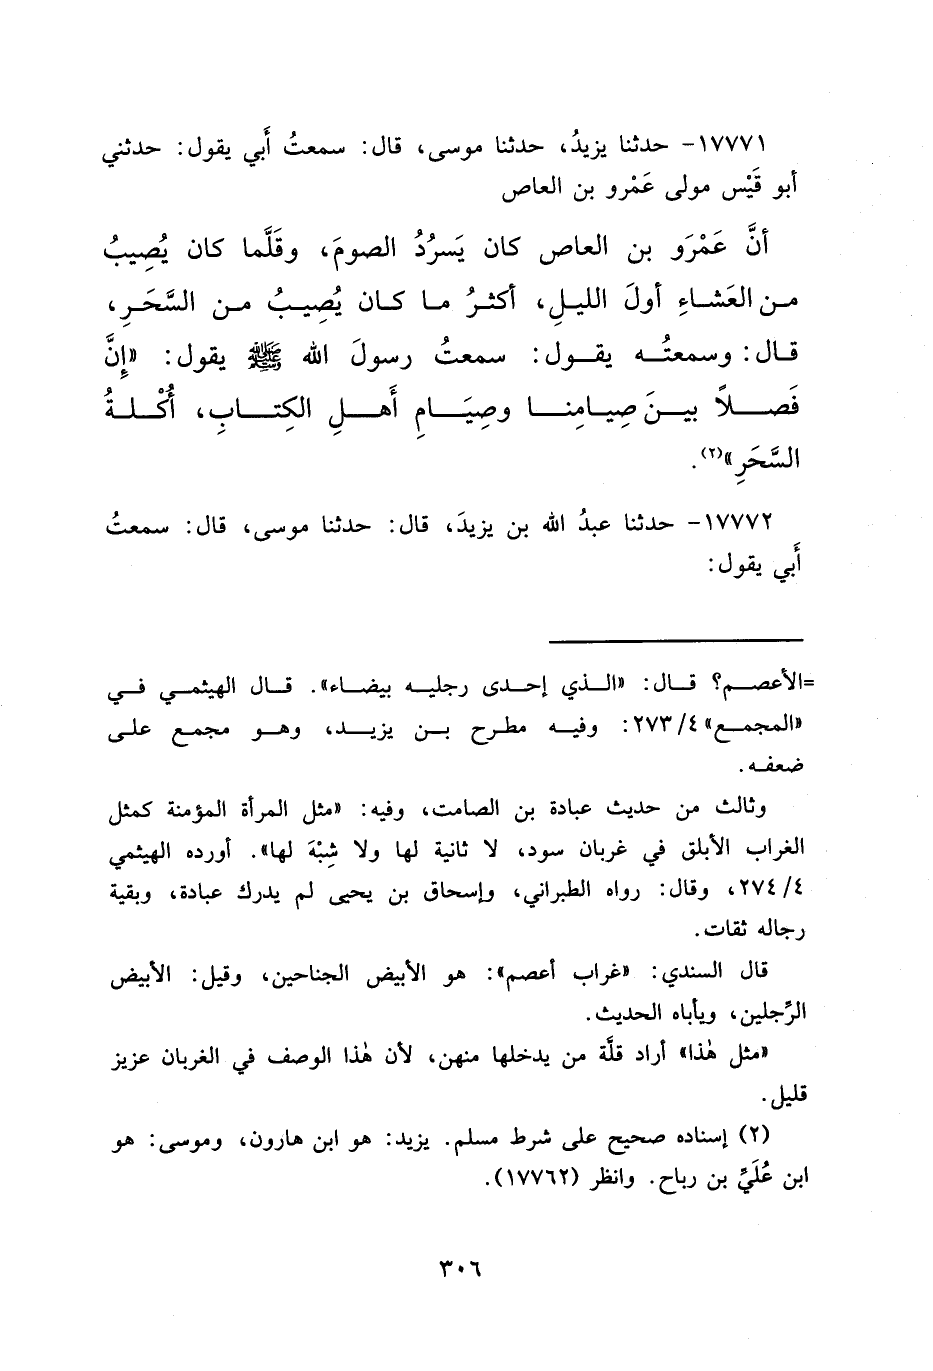 ١٧٧٧١- حدثنا يزيدُ، حدثنا موسى، قال: سمعتُ أَبي يقول: حدثني
أبو قَيْس مولى عَمْرو بن العاص
أنَّ عَمْرَو بن العاص كان يَسرُدُ الصومَ، وقَلَّما كان يُصِيبُ
من العَشاءِ أولَ الليلِ، أكثرُ ما كان يُصِيبُ من السَّحَرِ،
قال: وسمعتُه يقول: سمعتُ رسولَ الله ﷺ يقول: «إِنَّ
فَصلاً بينَ صِيامِنا وصِيَامِ أَهلِ الكِتابِ، أُكْلةُ
السَّحَرِ»(٢).
١٧٧٧٢- حدثنا عبدُ الله بن يزيدَ، قال: حدثنا موسى، قال: سمعتُ
أَبي يقول:
=الأعصم؟ قال: «الذي إحدى رجليه بيضاء». قال الهيثمي في
«المجمع» ٢٧٣/٤: وفيه مطرح بن يزيد، وهو مجمع على
ضعفه.
وثالث من حديث عبادة بن الصامت، وفيه: «مثل المرأة المؤمنة كمثل
الغراب الأبلق في غربان سود، لا ثانية لها ولا شِبْهَ لها». أورده الهيثمي
٢٧٤/٤، وقال: رواه الطبراني، وإسحاق بن يحيى لم يدرك عبادة، وبقية
رجاله ثقات.
قال السندي: «غراب أعصم»: هو الأبيض الجناحين، وقيل: الأبيض
الرِّجلين، ويأباه الحديث.
«مثل هٰذا» أراد قلَّة من يدخلها منهن، لأن هٰذا الوصف في الغربان عزيز
قليل.
(٢) إسناده صحيح على شرط مسلم. يزيد: هو ابن هارون، وموسى: هو
ابن عُلَيِّ بن رباح. وانظر (١٧٧٦٢).
٣٠٦